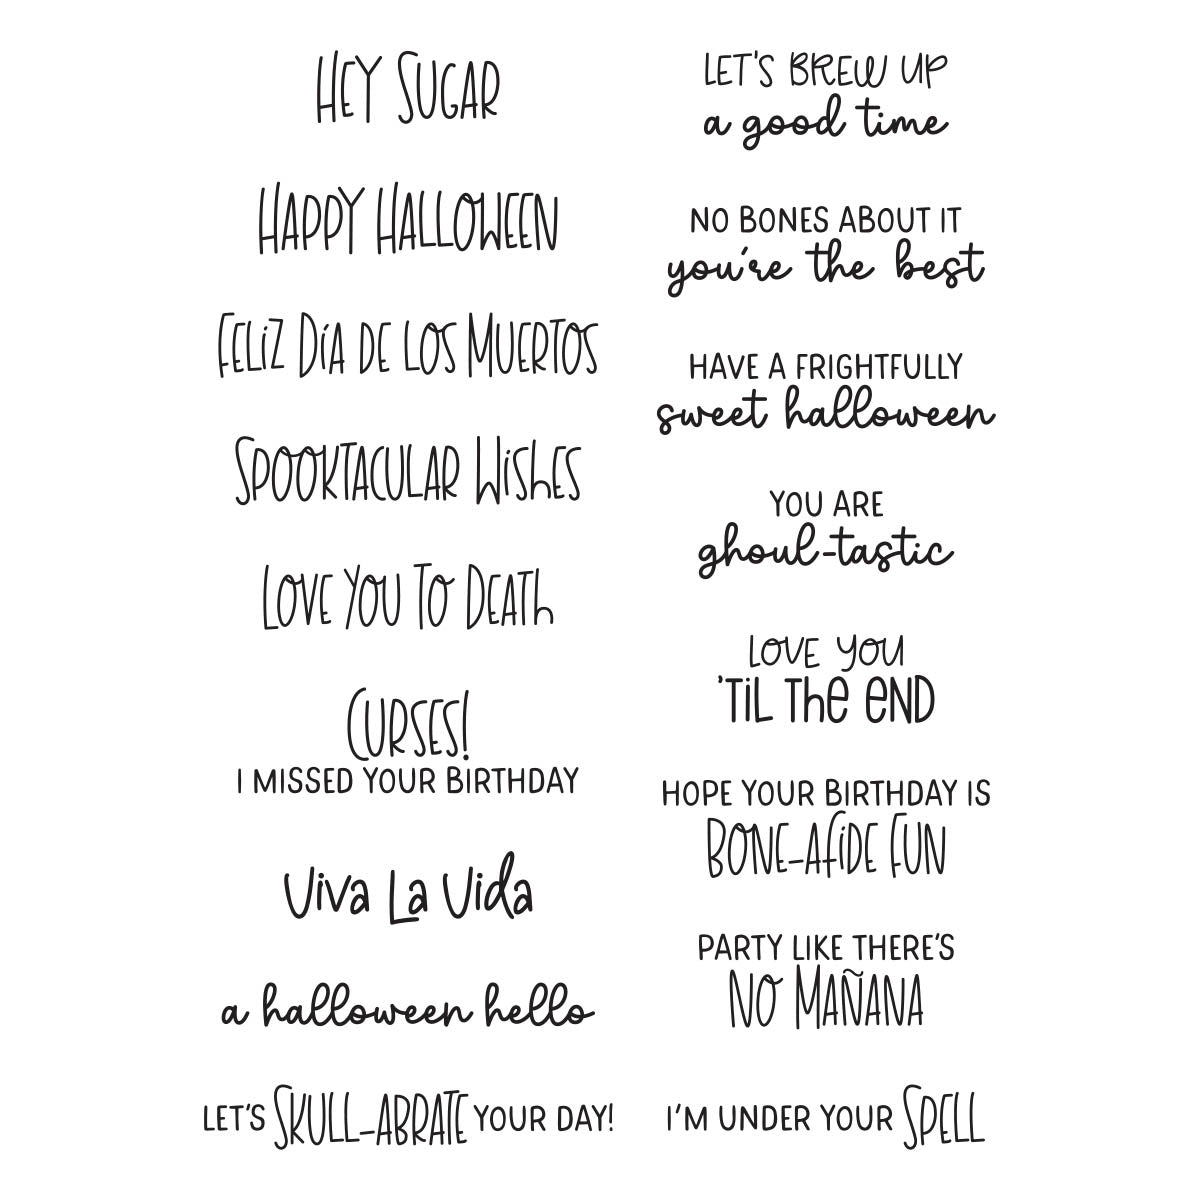 HEY SUGAR
HAPPY HALLOWEEN
FELIZ DÍA DE LOS MUERTOS
SPOOKTACULAR WISHES
LOVE YOU TO DEATH
CURSES!
I MISSED YOUR BIRTHDAY
Viva La Vida
a halloween hello
LET'S SKULL-ABRATE YOUR DAY!
LET'S BREW UP
a good time
NO BONES ABOUT IT
you're the best
HAVE A FRIGHTFULLY
sweet halloween
YOU ARE
ghoul-tastic
LOVE YOU
'TIL THE END
HOPE YOUR BIRTHDAY IS
BONE-AFIDE FUN
PARTY LIKE THERE'S
NO MAÑANA
I'M UNDER YOUR SPELL